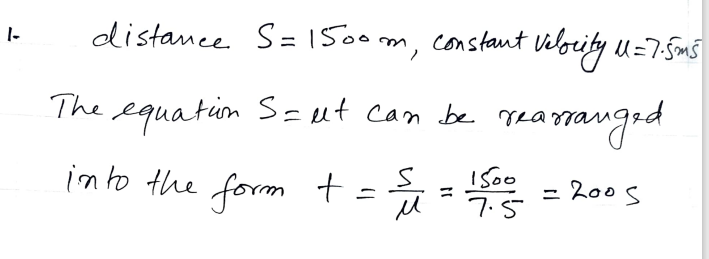 1- distance S = 1500 m, constant velocity u = 7.5 ms
The equation S = ut can be rearranged
into the form t = S/u = 1500/7.5 = 200 s